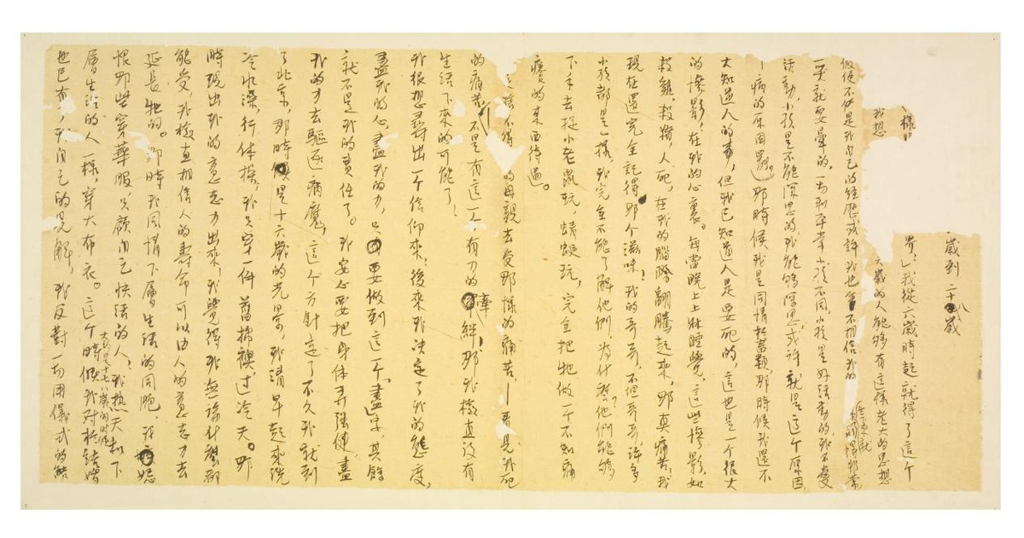 歲到二十八歲
我從六歲時起就得了這个
六歲的人能夠有這樣老大的思想
樣
我想
假使不似是我自己的經歷或許我也會不相信我的
一受就要暈的，一切平常小孩不同，小孩是好活動的我不愛
活動，小孩是不能深思的我能夠深思或許就是這个原因
—病的原因罷。」那時候我是同情於畜類，那時候我還不
大知道人的事，但我已知道人是要死的，這也是一个很大
的慘影，在我的心裏。每當晚上牀睡覺，這些慘影，如
殺雞，殺豬人死，在我的腦際翻騰起來，那真痛苦，我
現在還完全記得那个滋味！我的哥哥，不但哥哥許多
小孩都是一樣，我完全不能了解他們為什麼？他們能夠
下手去捉小老鼠玩，蜻蜓玩，完全把牠做一个不知痛
癢的東西待遇。
不得的母親去受那樣的痛苦——看見我死
的痛苦，不是有這一个有力的牽絆，那我檢直沒有
生活下來的可能了！
我很想尋出一个信仰來，後來我決定了我的態度，
盡我的心，盡我的力，只要做到這一个「盡」字，其餘
就不是我的責任了。我安心要把身体弄強健，盡
我的力去驅逐病魔，這个方針定了不久我就到
了北京，那時是十六歲的光景，我清早起來洗
冷水澡，行体操，我只穿一件舊棉襖过冷天。那
時現出我的意志力出來，我覺得我無論什麼都
能受，我極直相信人的壽命可以由人的意志力去
延長牠的。那時我同情下層生活的同胞，我忌
恨那些穿華服只顧自己快活的人！我熱天和下
層生活的人一樣，穿大布衣。這个時候我对於結婚
大約是十七八歲的時候
也已有了我自己的見解，我反對一切用儀式的結